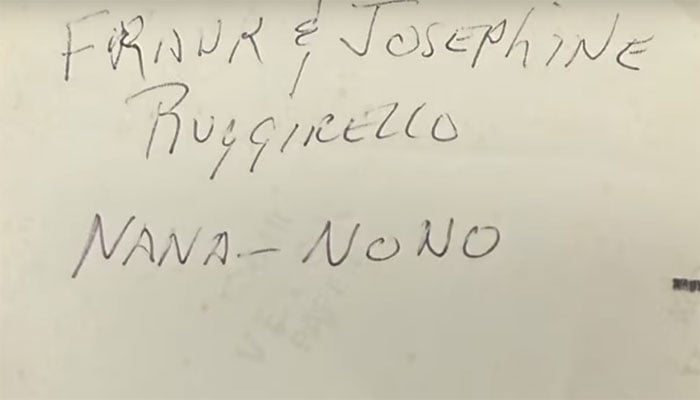 FRANK & JOSEPHINE
RUGGIRELLO
NANA - NONO